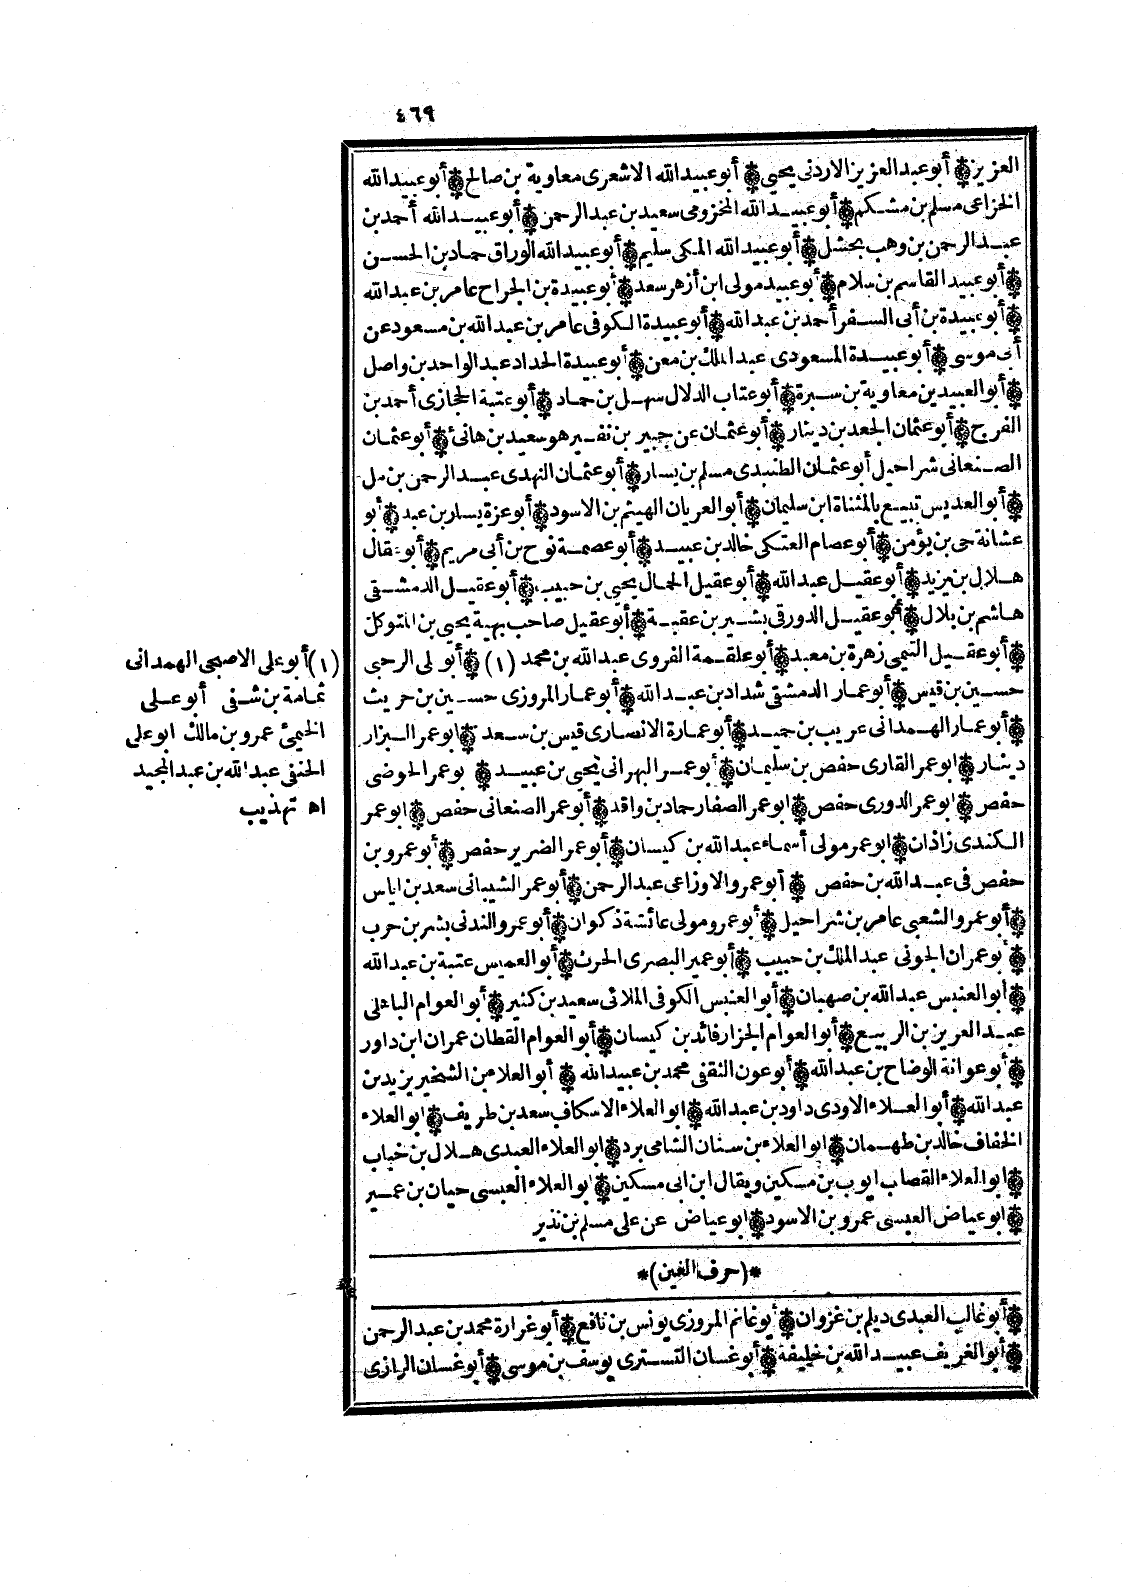 ٤٦٩
العزيز ۞ أبو عبد العزيز الاردنى يحيى ۞ أبو عبيد الله الاشعرى معاوية بن صالح ۞ أبو عبيد الله
الخزاعى مسلم بن مشكم ۞ أبو عبيد الله المخزومى سعيد بن عبد الرحمن ۞ أبو عبيد الله أحمد بن
عبد الرحمن بن وهب بحشل ۞ أبو عبيد الله المكى سليم ۞ أبو عبيد الله الوراق حماد بن الحسن
۞ أبو عبيد القاسم بن سلام ۞ أبو عبيد مولى ابن أزهر سعد ۞ أبو عبيدة بن الجراح عامر بن عبد الله
۞ أبو عبيدة بن أبى السفر أحمد بن عبد الله ۞ أبو عبيدة الكوفى عامر بن عبد الله بن مسعود عن
أبى موسى ۞ أبو عبيدة المسعودى عبد الملك بن معن ۞ أبو عبيدة الحداد عبد الواحد بن واصل
۞ أبو العبيد ين معاوية بن سبرة ۞ أبو عتاب الدلال سهل بن حماد ۞ أبو عتبة الحجازى أحمد بن
الفرج ۞ أبو عثمان الجعد بن دينار ۞ أبو عثمان عن جبير بن نفير هو سعيد بن هانئ ۞ أبو عثمان
الصنعانى شراحيل أبو عثمان الطنبذى مسلم بن يسار ۞ أبو عثمان النهدى عبد الرحمن بن مل
۞ أبو العديس تبيع بالمثناة ابن سليمان ۞ أبو العريان الهيثم بن الاسود ۞ أبو عزة يسار بن عبد ۞ أبو
عشانة حى بن يؤمن ۞ أبو عصام العتكى خالد بن عبيد ۞ أبو عصمة نوح بن أبى مريم ۞ أبو عقال
هلال بن يزيد ۞ أبو عقيل عبد الله ۞ أبو عقيل الجمال يحيى بن حبيب ۞ أبو عقيل الدمشقى
هاشم بن بلال ۞ أبو عقيل الدورقى بشير بن عقبة ۞ أبو عقيل صاحب بهية يحيى بن المتوكل
۞ أبو عقيل التيمى زهرة بن معبد ۞ أبو علقمة الفروى عبد الله بن محمد (١) ۞ أبو لى الرحبى
حسين بن قيس ۞ أبو عمار الدمشقى شداد بن عبد الله ۞ أبو عمار المروزى حسين بن حريث
۞ أبو عمار الهمدانى عريب بن حميد ۞ أبو عمارة الانصارى قيس بن سعد ۞ ابو عمر البزار
دينار ۞ ابو عمر القارى حفص بن سليمان ۞ أبو عمر البهرانى يحيى بن عبيد ۞ بو عمر الحوضى
حفص ۞ ابو عمر الدورى حفص ۞ ابو عمر الصفار حماد بن واقد ۞ أبو عمر الصنعانى حفص ۞ ابو عمر
الكندى زاذان ۞ ابو عمر مولى أسماء عبد الله بن كيسان ۞ أبو عمر الضرير حفص ۞ أبو عمرو بن
حفص فى عبد الله بن حفص ۞ أبو عمرو الاوزاعى عبد الرحمن ۞ أبو عمر الشيبانى سعد بن اياس
۞ أبو عمرو الشعبى عامر بن شراحيل ۞ أبو عمرو مولى عائشة ذكوان ۞ أبو عمرو الندنى بشر بن حرب
۞ أبو عمران الجونى عبد الملك بن حبيب ۞ أبو عمير البصرى الحرث ۞ أبو العميس عتبة بن عبد الله
۞ أبو العنبس عبد الله بن صهبان ۞ أبو العنبس الكوفى الملائى سعيد بن كثير ۞ أبو العوام الباهلى
عبد العزيز بن الربيع ۞ أبو العوام الجزار فائد بن كيسان ۞ أبو العوام القطان عمران ابن داور
۞ أبو عوانة الوضاح بن عبد الله ۞ أبو عون الثقفى محمد بن عبيد الله ۞ أبو العلاء بن الشخير يزيد بن
عبد الله ۞ أبو العلاء الاودى داود بن عبد الله ۞ ابو العلاء الاسكاف سعد بن طريف ۞ ابو العلاء
الخفاف خالد بن طهمان ۞ ابو العلاء بن سنان الشامى برد ۞ ابو العلاء العبدى هلال بن خباب
۞ ابو العلاء القصاب ايوب بن مسكين ويقال ابن ابى مسكين ۞ ابو العلاء العبسى حيان بن عمير
۞ ابو عياض العبسى عمرو بن الاسود ۞ ابو عياض عن على مسلم بن نذير
*(حرف الغين)*
۞ أبو غالب العبدى ديلم بن غزوان ۞ أبو غانم المروزى يونس بن نافع ۞ أبو غرارة محمد بن عبد الرحمن
۞ أبو الغريف عبيد الله بن خليفة ۞ أبو غسان التسترى يوسف بن موسى ۞ أبو غسان الرازى
(١) أبو على الاصبحى الهمدانى
ثمامة بن شفى أبو على
الخيمى عمرو بن مالك ابو على
الحنفى عبد الله بن عبد المجيد
اه تهذيب